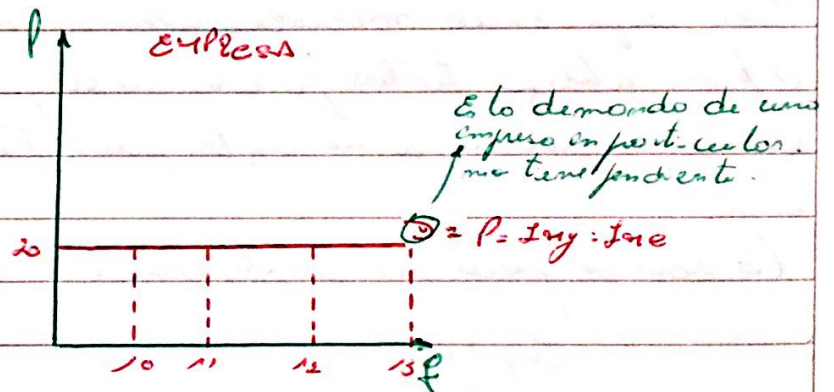 P
EMPRESA
Es la demanda de una
empresa en particular.
no tiene pendiente.
20
= P = Img = Ime
10 11 12 13 q